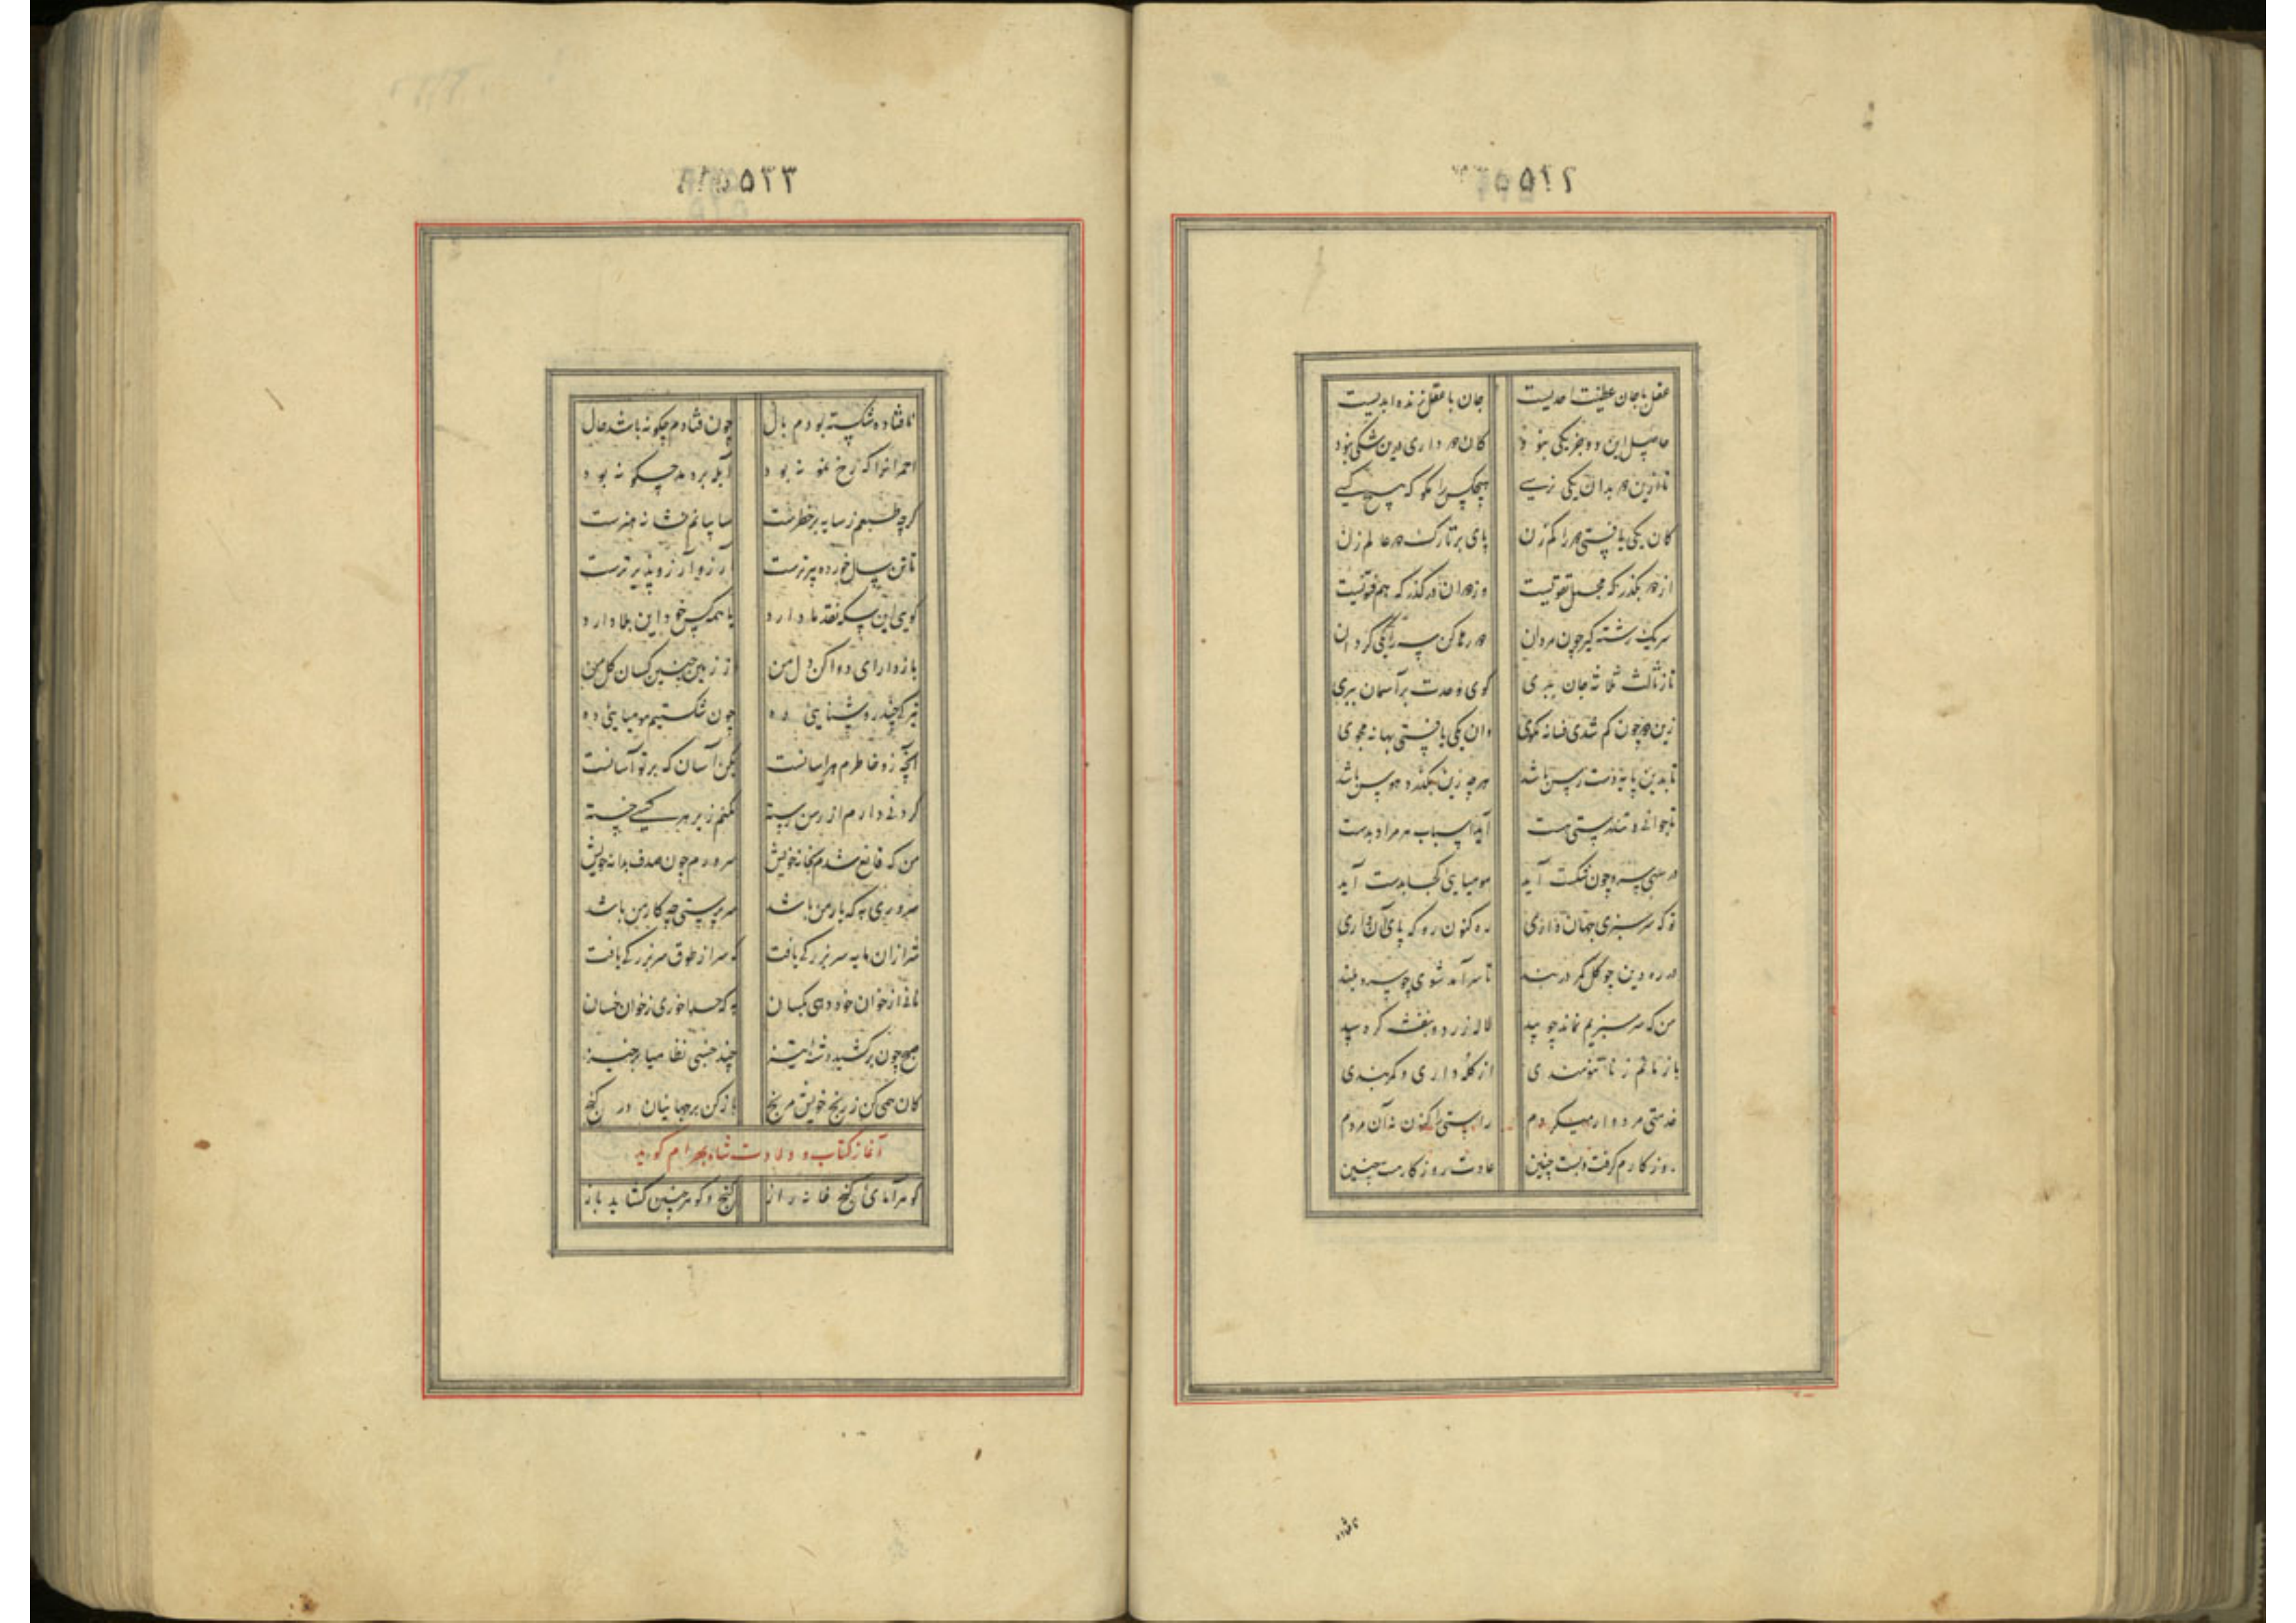 ۵۲۲
عقل با جان عطیت احدیست جان با عقل زنده ابدیست
حاصل این دو جز یکی نبود کان دو داری درین شکی نبود
تا ازین دو بدان یکی نرسی هیچکس را مگو که هیچ کسی
کان یکی یافتی دو را کم زن پای بر تارک دو عالم زن
از دو بگذر که محمل ثنویست وز دران در گذر که هم
سر یک رشته گیر چون مردان دو رها کن سه را یکی گردان
تا ز ثالث ثلاثه جان نبری گوی وحدت بر آسمان نبری
زین دو چون گم شدی فسانه مگوی وان یکی یافتی بهانه مجوی
تا بدین پایه دست رس باشد هر چه زین بگذرد هوس باشد
تا جوانی و تندرستی هست آید اسباب هر مراد بدست
در سهی سرو چون شکست آید مومیایی کجا بدست آید
تو که سرسبزی جهان داری ره کنون رو که پای آن داری
در ره دین چو گل کمر دربند تا سرآمد شوی چو سرو بلند
من که سرسبزیم نماند چو بید لاله زرد و بنفشه گره سپید
باز ماندم ز ناتنومندی از کله داری و کمربندی
خدمتی مردوار میکردم راستی را کنون نه آن مردم
روزگارم گرفت و بست چنین عادت روزگار هست چنین
۵۲۳
نافتاده شکسته بودم بال چون فتادم چگونه باشد حال
گرچه طبعم ز سایه بر خطرست سایبانم نشانه هنرست
تا تن سال خورده پیرترست آرزو آرزوپذیرترست
گویی این سکه نقد ما دارد یا همه کس خود این بلا دارد
باز دار ای دوا کن دل من از زمین چنین کسان گل من
تیرگی چند روشنایی ده چون شکستیم مومیایی ده
آنچه زو خاطرم هراسانست بکن آسان که بر تو آسانست
گردنی دارم از رسن رسته نکنم زیر هر کسی خسته
من که قانع شدم بخانه خویش سرورم چون صدف بدانه خویش
سروری به که یار من باشد سر پرستی چه کار من باشد
شیر ازان مایه سر بزرگی یافت که سر از طوق سر بزرگی یافت
نانی از خوان خود دهی بکسان به که حلوا خوری ز خوان خسان
صبح چون برکشید دشنه تیز چند خسبی نظامیا برخیز
کان همی کن ز رنج خویش مرنج باز کن بر جهانیان در گنج
آغاز کتاب و ولادت شاه بهرام گوید
گوهرآمای گنج خانه راز گنج و گوهر چنین گشاید باز